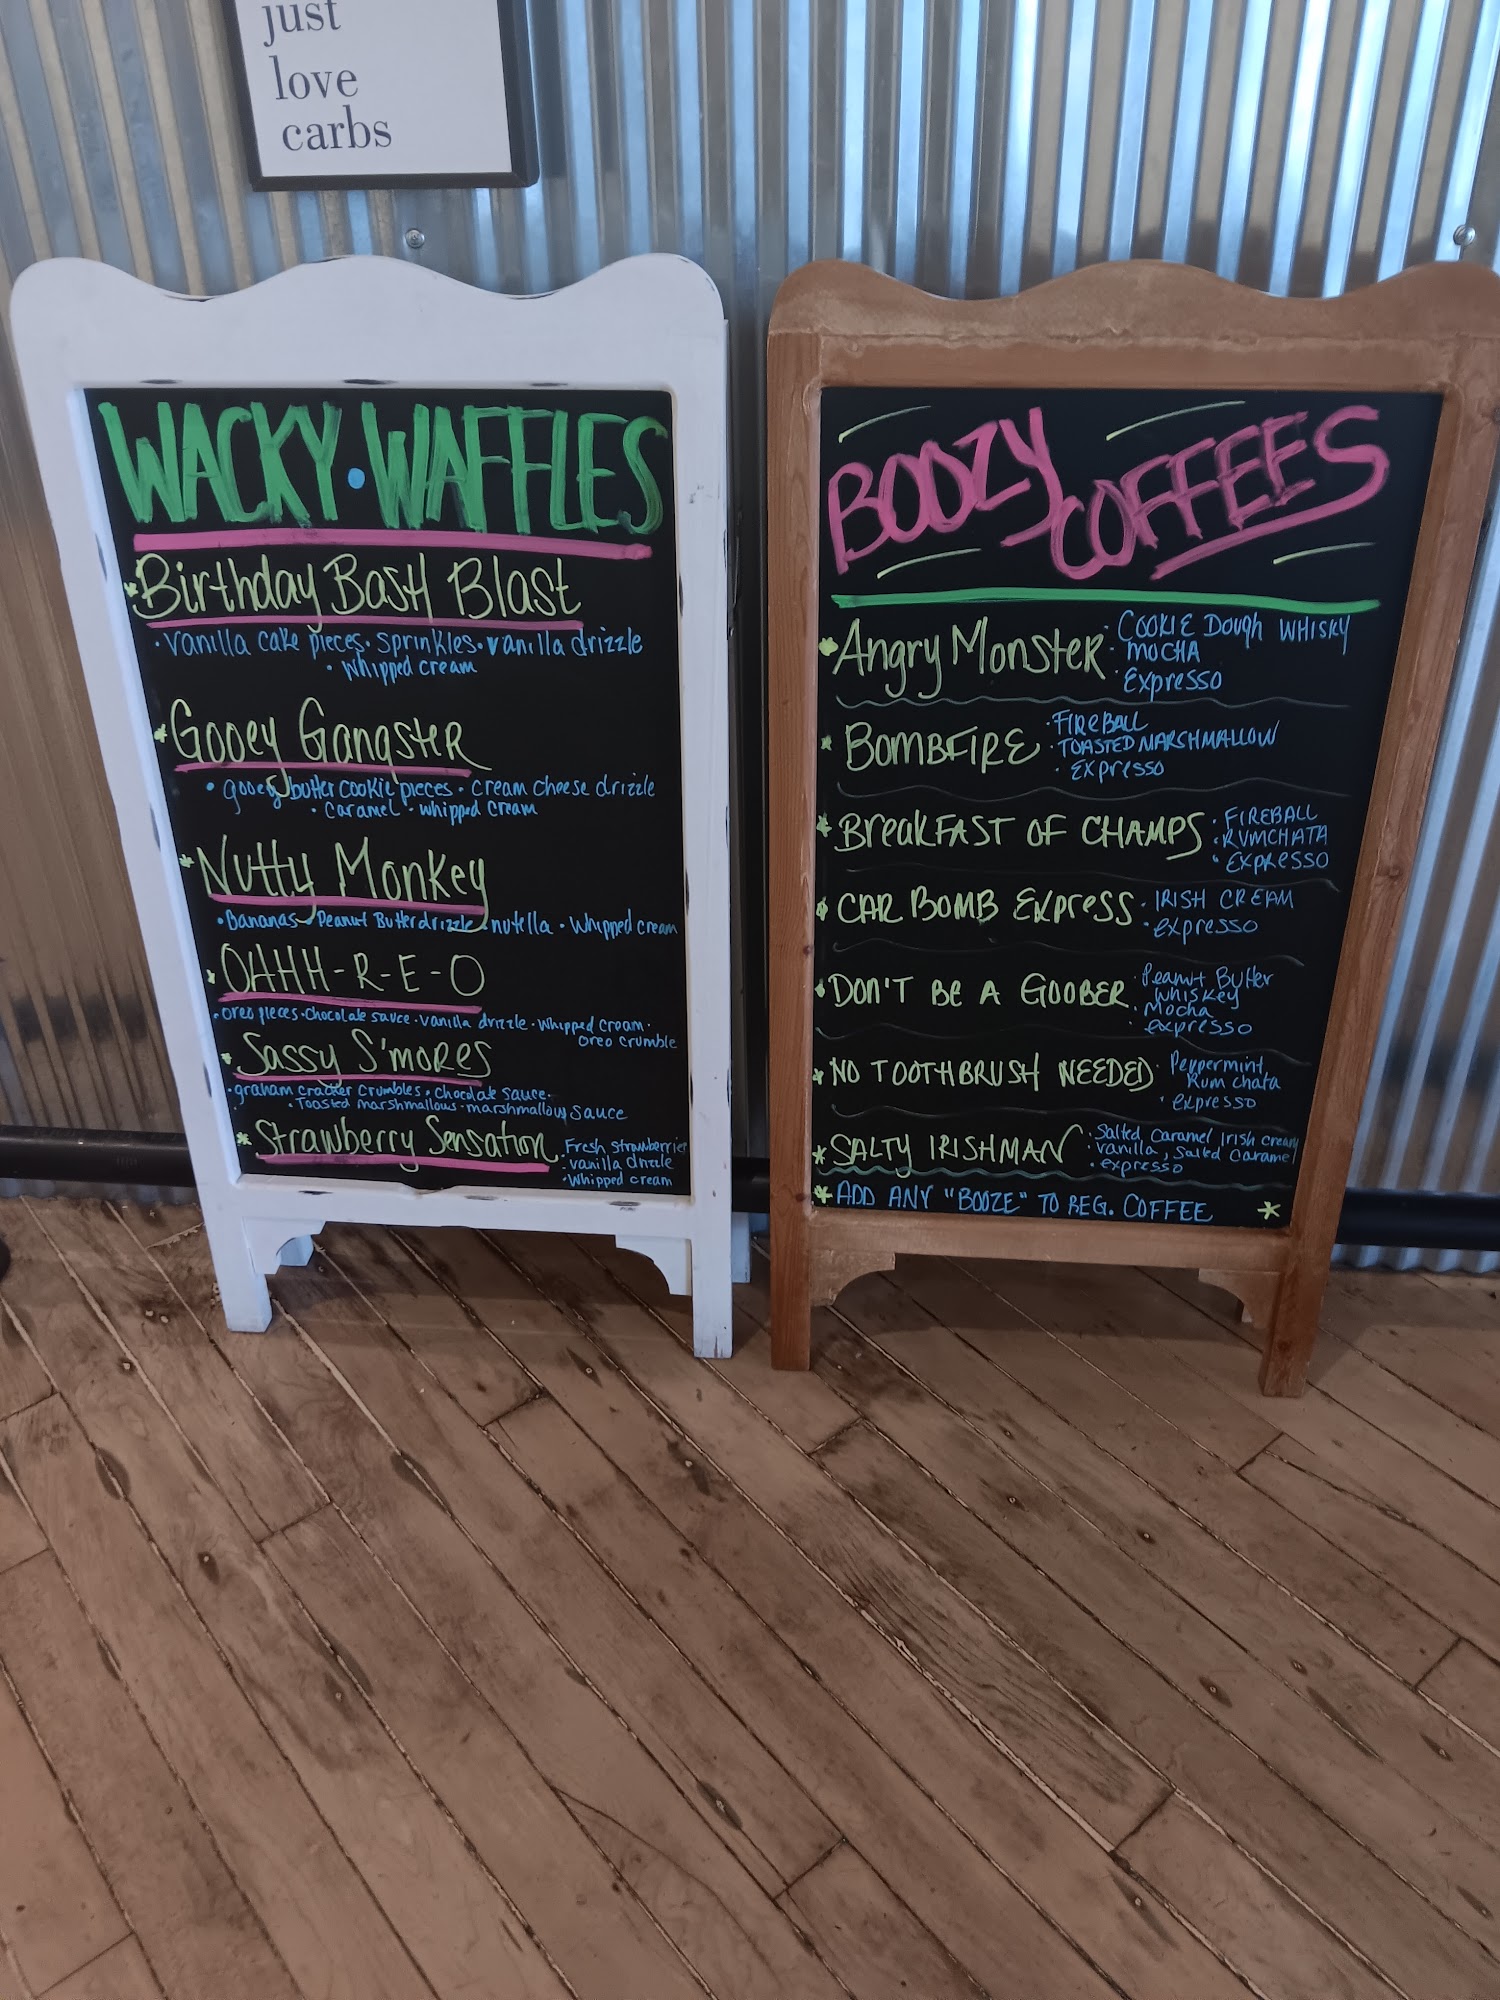 just
love
carbs
WACKY • WAFFLES
* Birthday Bash Blast
• vanilla cake pieces • sprinkles • vanilla drizzle
• whipped cream
* Gooey Gangster
• gooey butter cookie pieces • cream cheese drizzle
• caramel • whipped cream
* Nutty Monkey
• Bananas • Peanut Butter drizzle • nutella • whipped cream
* OHHH-R-E-O
• oreo pieces • chocolate sauce • vanilla drizzle • whipped cream •
oreo crumble
* Sassy S'mores
• graham cracker crumbles • chocolate sauce •
• Toasted marshmallows • marshmallow sauce
* Strawberry Sensation
• Fresh strawberries
• vanilla drizzle
• whipped cream
BOOZY
COFFEES
* Angry Monster
• COOKIE Dough WHISKY
• MOCHA
• Expresso
* BOMBFIRE
• FIREBALL
• TOASTED MARSHMALLOW
• Expresso
* BREAKFAST OF CHAMPS
• FIREBALL
• RUMCHATA
• Expresso
* CAR BOMB EXPRESS
• IRISH CREAM
• expresso
* DON'T BE A GOOBER
• Peanut Butter
whiskey
• Mocha
• expresso
* NO TOOTHBRUSH NEEDED
• Peppermint
Rum chata
• expresso
* SALTY IRISHMAN
• Salted Caramel Irish cream
• vanilla, salted caramel
• expresso
* ADD ANY "BOOZE" TO REG. COFFEE *